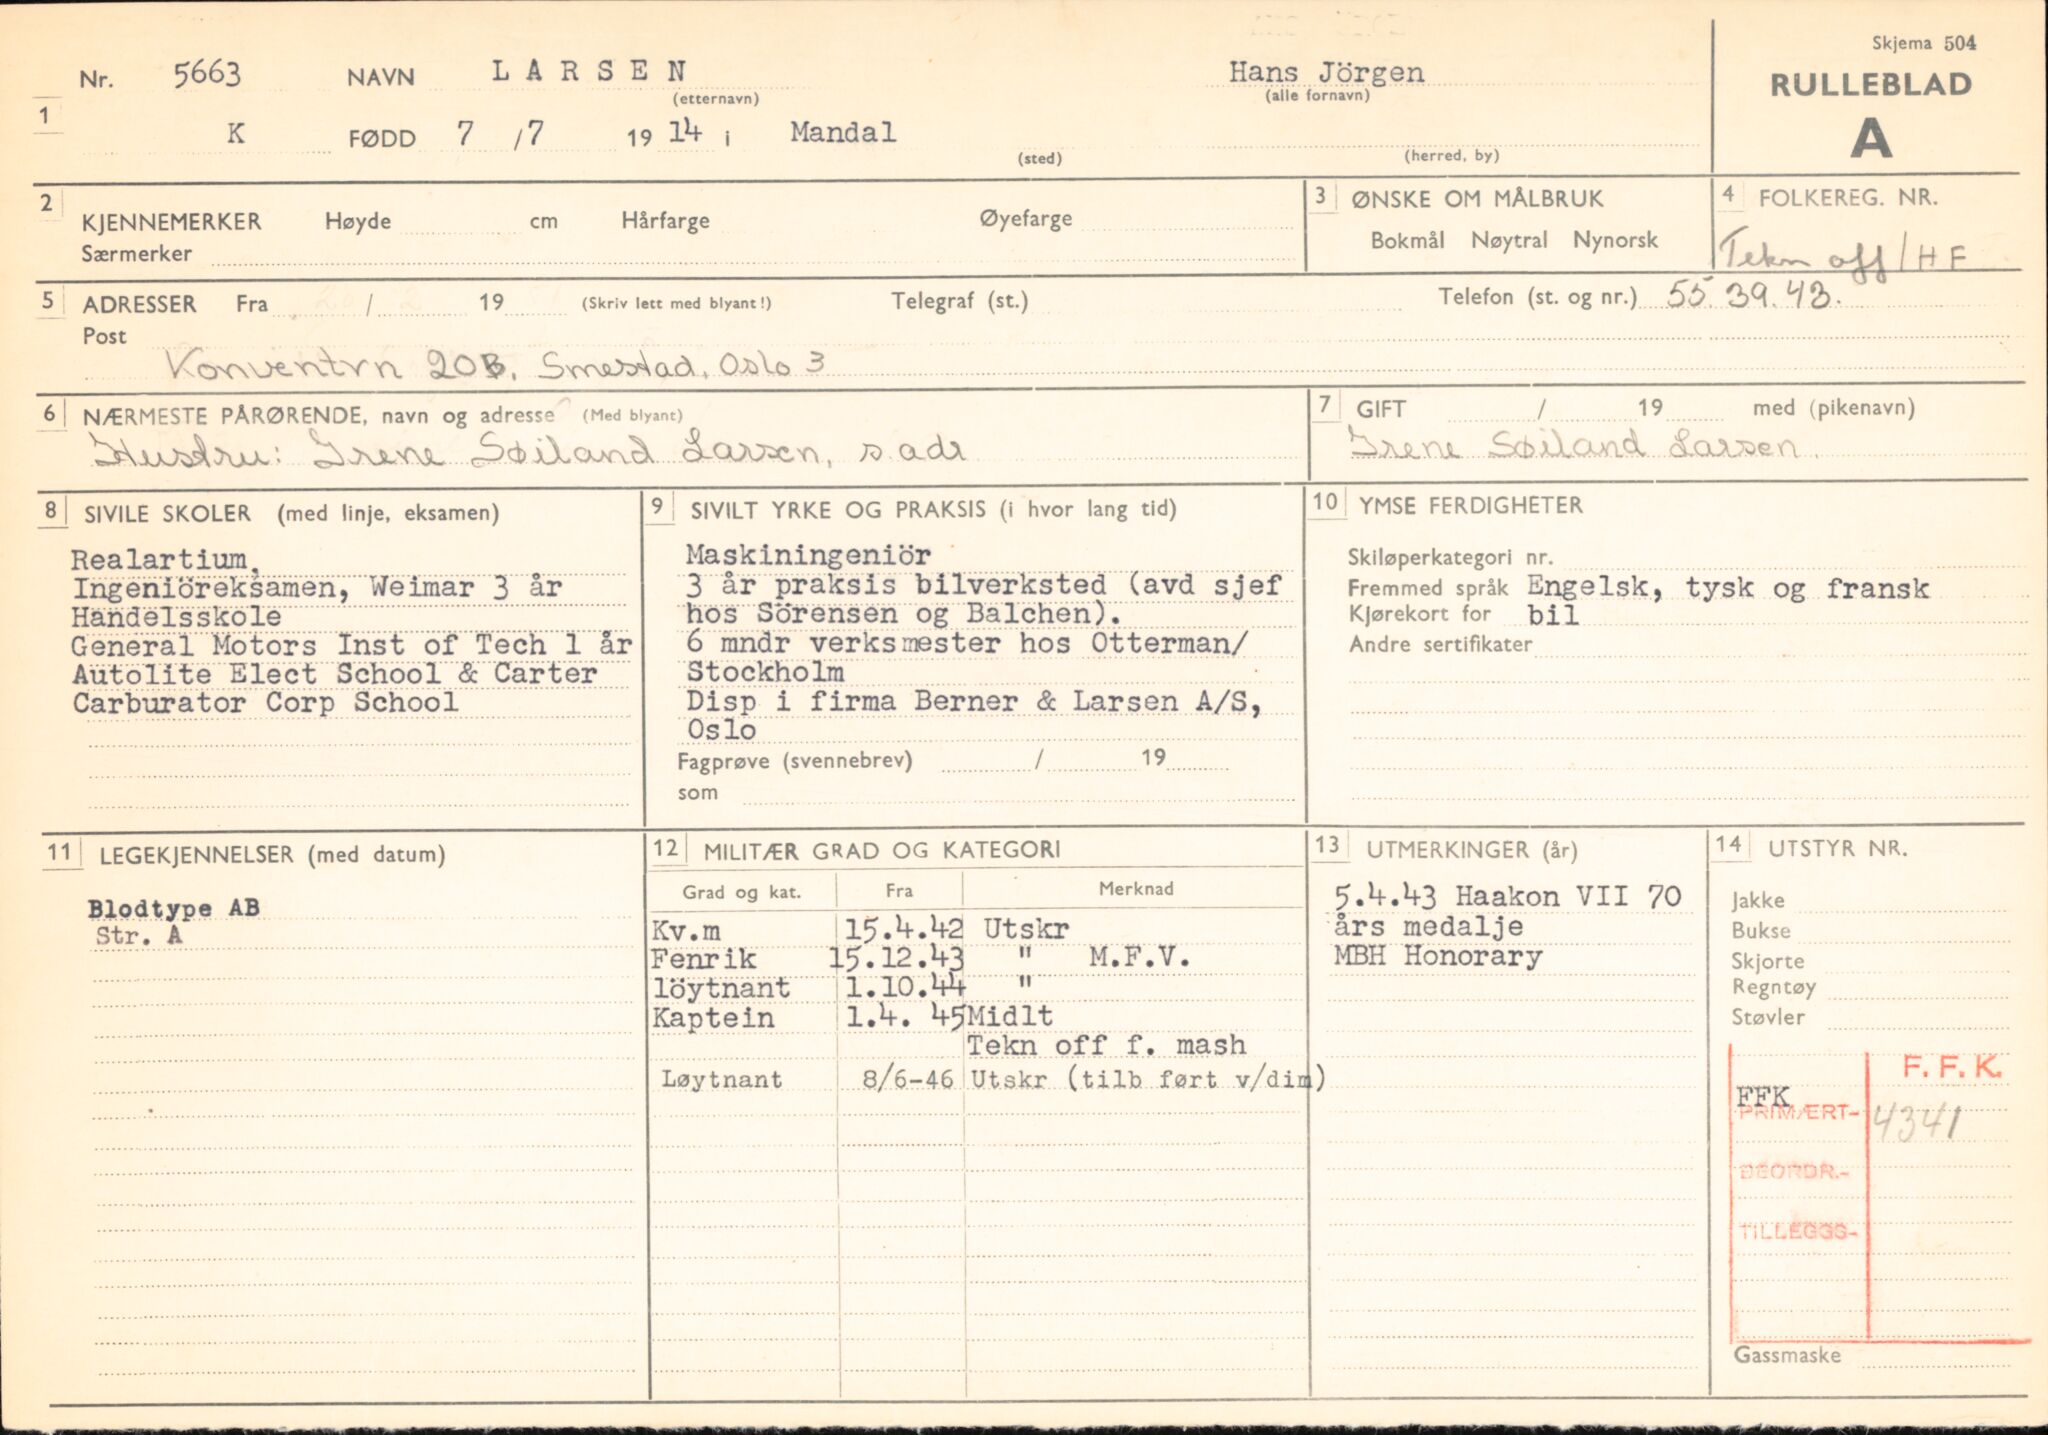 Skjema 504
RULLEBLAD
A
1
Nr. 5663 NAVN LARSEN Hans Jörgen
(etternavn) (alle fornavn)
K FØDD 7/7 1914 i Mandal
(sted) (herred, by)
2 KJENNEMERKER Høyde cm Hårfarge Øyefarge
Særmerker
3 ØNSKE OM MÅLBRUK
Bokmål Nøytral Nynorsk
4 FOLKEREG. NR.
Tekn off/HF
5 ADRESSER Fra / 19 (Skriv lett med blyant!) Telegraf (st.) Telefon (st. og nr.) 55 39.43.
Post
Konventvn 20B, Smestad, Oslo 3
6 NÆRMESTE PÅRØRENDE, navn og adresse (Med blyant)
Hustru: Irene Søiland Larsen, s adr
7 GIFT / 19 med (pikenavn)
Irene Søiland Larsen.
8 SIVILE SKOLER (med linje, eksamen)
Realartium,
Ingeniöreksamen, Weimar 3 år
Handelsskole
General Motors Inst of Tech 1 år
Autolite Elect School & Carter
Carburator Corp School
9 SIVILT YRKE OG PRAKSIS (i hvor lang tid)
Maskiningeniör
3 år praksis bilverksted (avd sjef
hos Sörensen og Balchen).
6 mndr verksmester hos Otterman/
Stockholm
Disp i firma Berner & Larsen A/S,
Oslo
Fagprøve (svennebrev) / 19
som
10 YMSE FERDIGHETER
Skiløperkategori nr.
Fremmed språk Engelsk, tysk og fransk
Kjørekort for bil
Andre sertifikater
11 LEGEKJENNELSER (med datum)
Blodtype AB
Str. A
12 MILITÆR GRAD OG KATEGORI
Grad og kat. Fra Merknad
Kv.m 15.4.42 Utskr
Fenrik 15.12.43 " M.F.V.
löytnant 1.10.44 "
Kaptein 1.4. 45 Midlt
Tekn off f. mash
Løytnant 8/6-46 Utskr (tilb ført v/dim)
13 UTMERKINGER (år)
5.4.43 Haakon VII 70
års medalje
MBH Honorary
14 UTSTYR NR.
Jakke
Bukse
Skjorte
Regntøy
Støvler
F. F. K.
FFK
PRIMÆRT- 4341
BEORDR.-
TILLEGGS-
Gassmaske